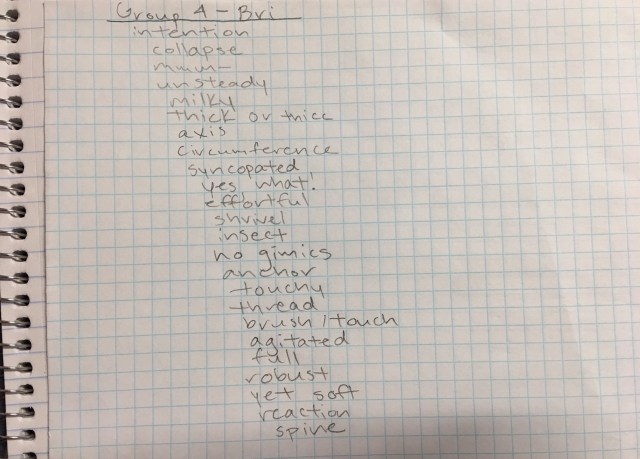 Group 4 - Bri
intention
collapse
mmm-
unsteady
milky
thick or thicc
axis
circumference
syncopated
yes what!
effortful
shrivel
insect
no gimics
anchor
touchy
thread
brush/touch
agitated
full
robust
yet soft
reaction
spine